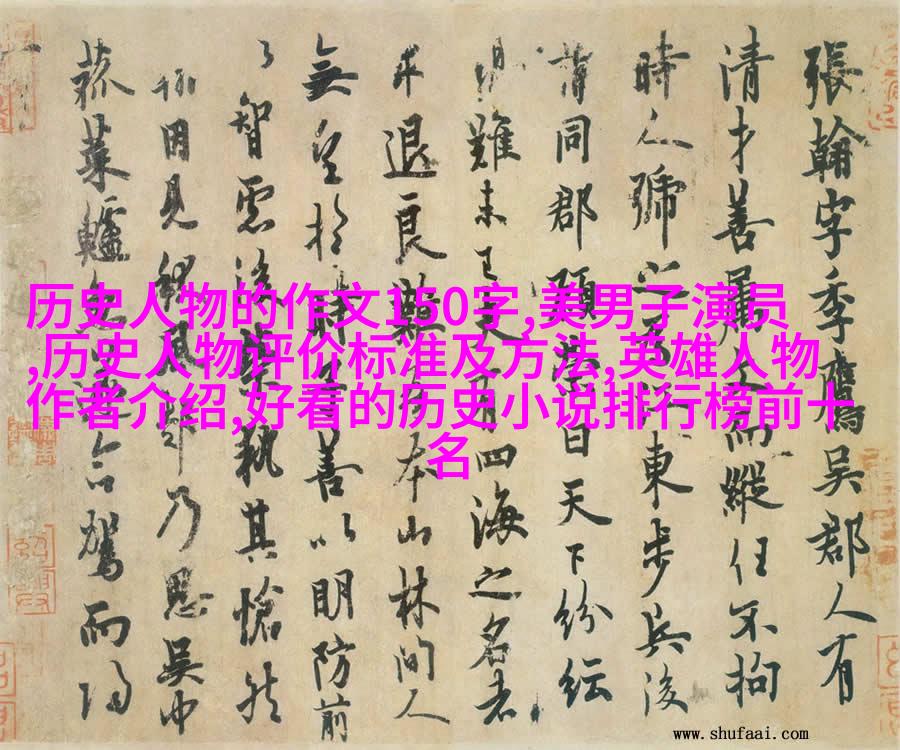 历史人物的作文150字,美男子演员
,历史人物评价标准及方法,英雄人物
作者介绍,好看的历史小说排行榜前十
名
張翰字季鷹吳郡人有
清才善屬文而縱任不拘
時人號之為江東步兵後
謂同郡顧榮曰天下紛紜
難未已夫有四海之名者
求退良難吾本山林間人
無望於時子善以明防前
以智慮後榮執其愴然
翰因見秋風起乃思吳中
菰菜鱸魚遂命駕而歸
www.shufaai.com